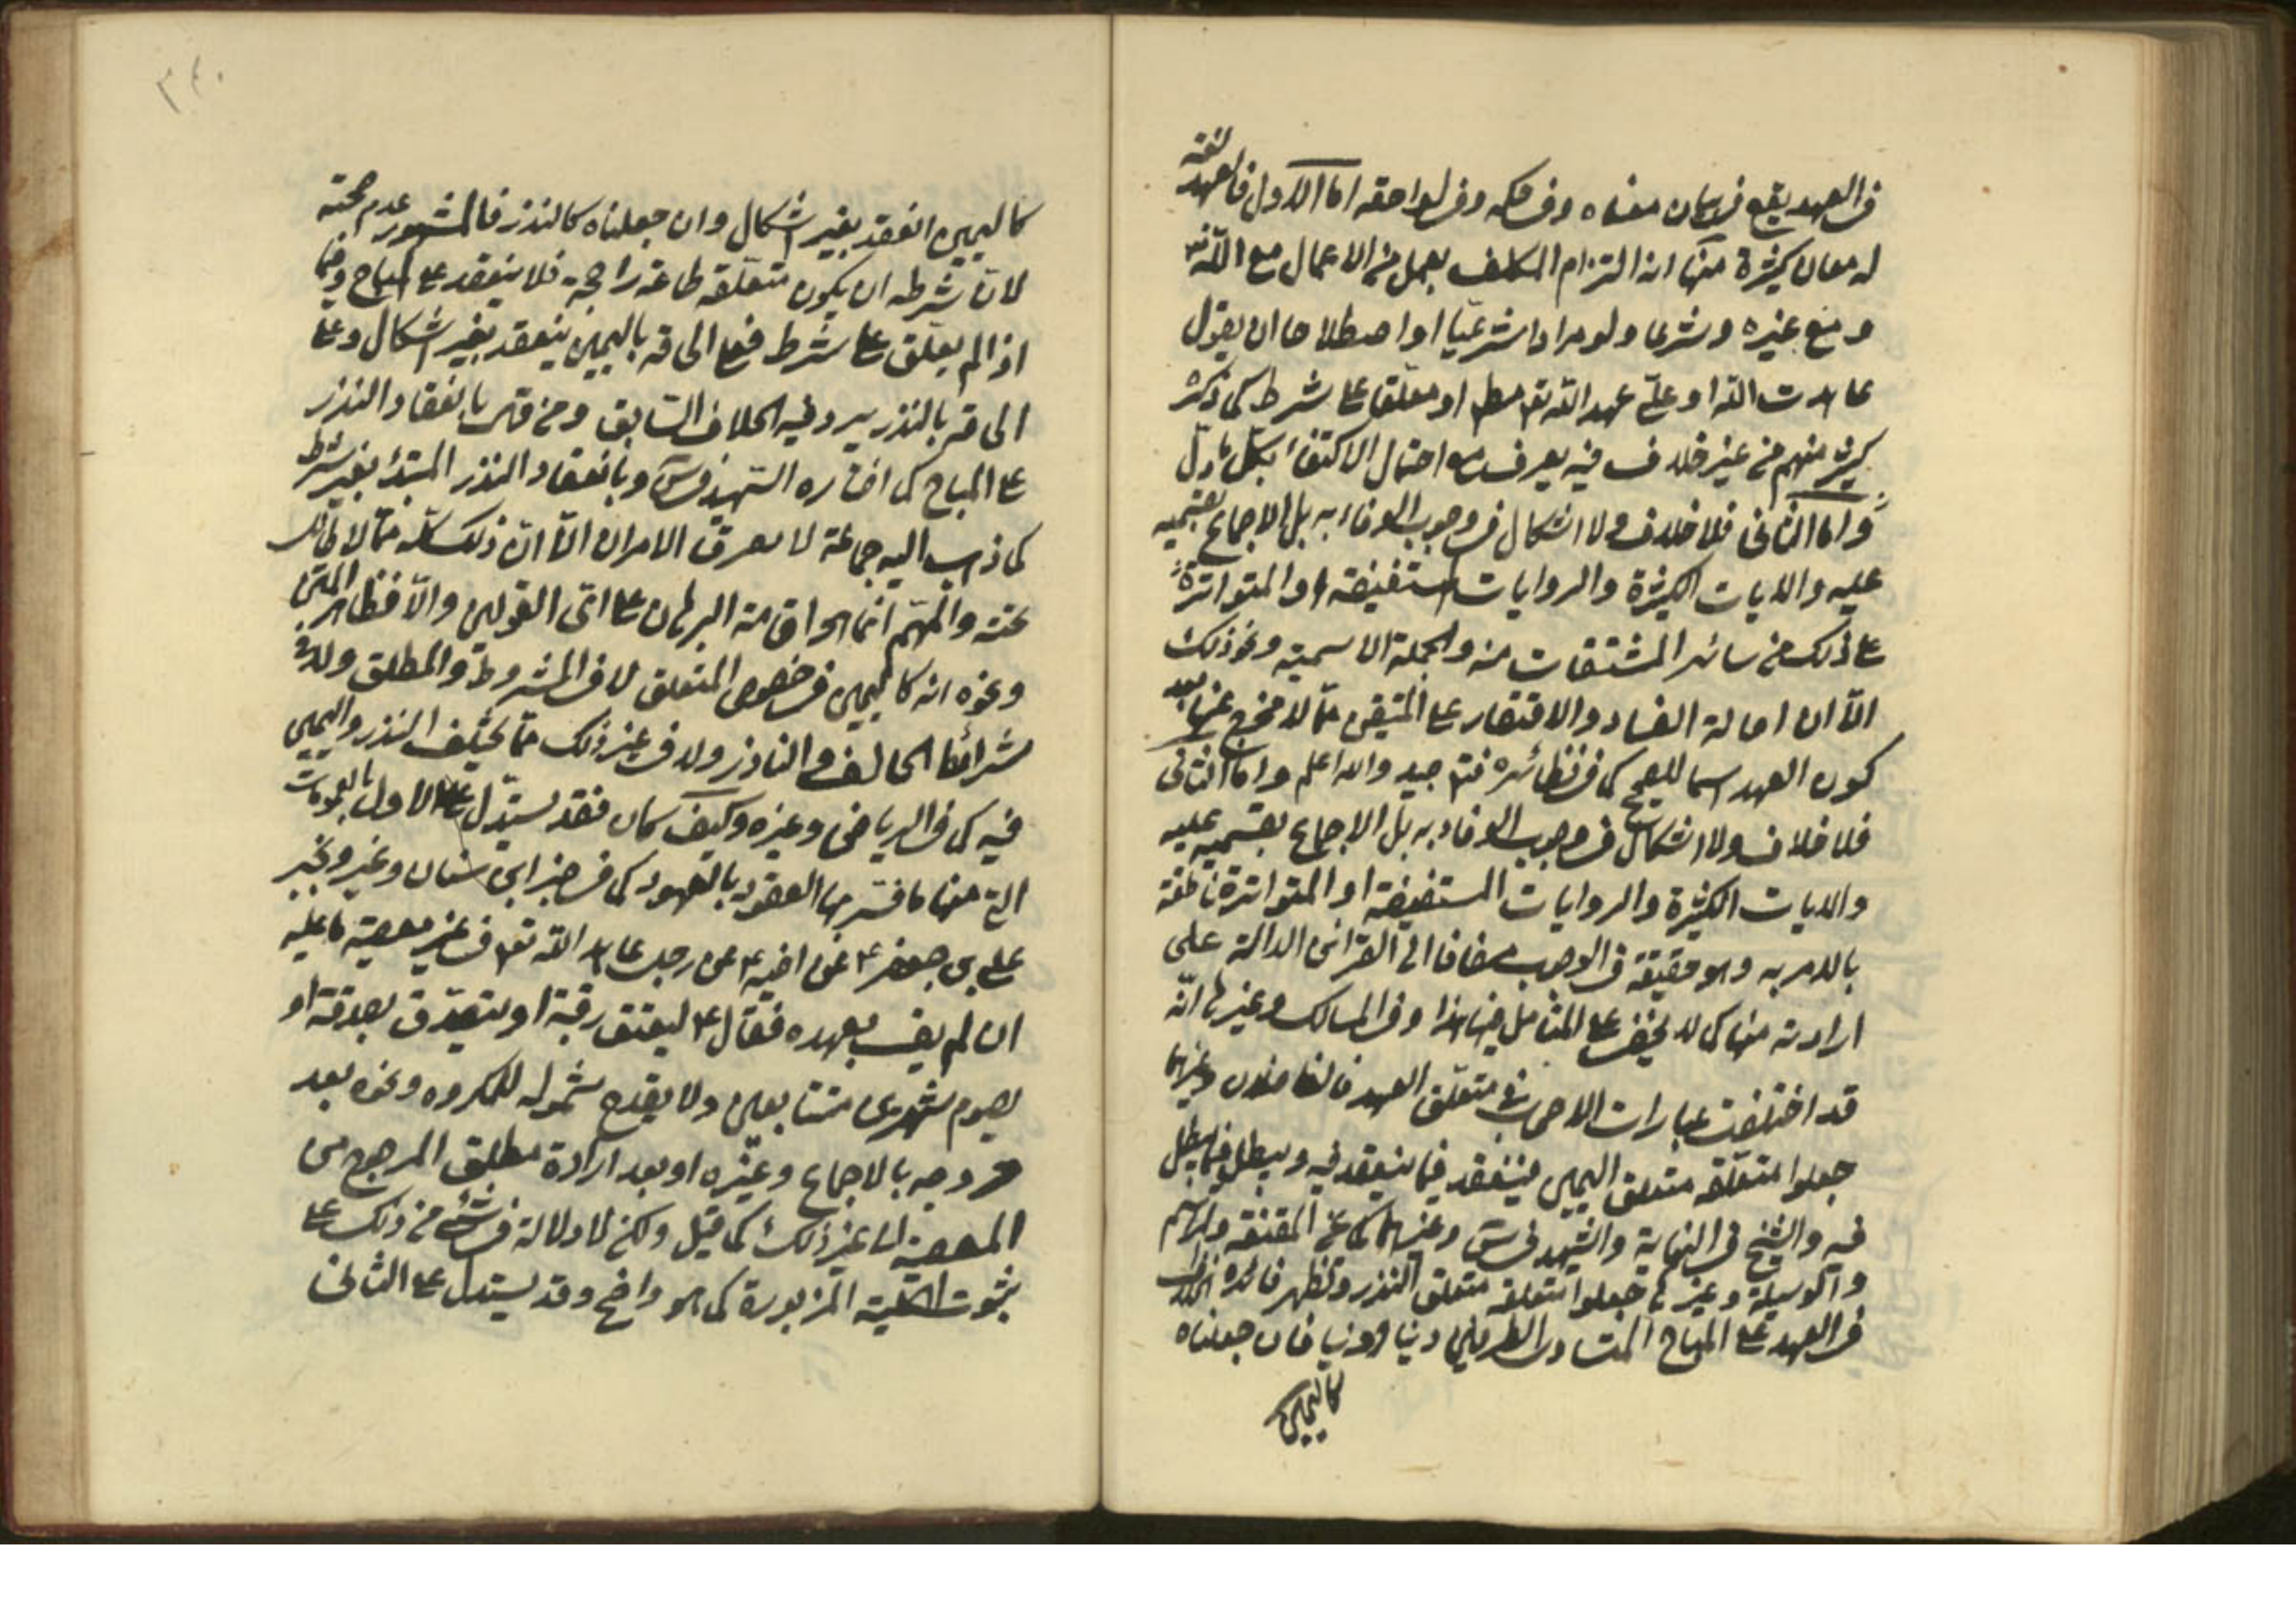 في العهد يقع في بيان معناه وفي حكمه وفي لواحقه اما الاول فالعهد لغة
له معان كثيرة منها انه التزام المكلف بعمل من الاعمال مع الله تعالى
ومع غيره وشرعا ولو مرادا شرعيا او اصطلاحا ان يقول
عاهدت الله او علي عهد الله تعه مطلقا او معلقا على شرط كما ذكره
كثير منهم من غير خلاف فيه يعرف مع احتمال الاكتفاء بكل ما دل
واما الثاني فلا خلاف ولا اشكال في وجوب الوفاء به بل الاجماع بقسميه
عليه والايات الكثيرة والروايات المستفيضة او المتواترة
على ذلك من سائر المشتقات منه والجملة الاسمية ونحو ذلك
الا ان اصالة الفساد والاقتصار على المتيقن مما لا مخرج عنها بعد
كون العهد اسما للصحيح كما في نظائره فتدبر جيد والله اعلم واما الثاني
فلا خلاف ولا اشكال في وجوب الوفاء به بل الاجماع بقسميه عليه
والايات الكثيرة والروايات المستفيضة او المتواترة ناطقة
بالامر به وهو حقيقة في الوجوب مضافا الى القرائن الدالة على
ارادته منها كما لا يخفى على المتامل فيها هذا وفي المسالك وغيرها انه
قد اختلفت عبارات الاصحاب في متعلق العهد فالفاضلان وغيرهما
جعلوا متعلقه متعلق اليمين فينعقد فيما ينعقد فيه ويبطل فيما يبطل
فيه والشيخ في النهاية والشهيد في س وغيرهما كما عن المقنعة والمراسم
والوسيلة وغيرها جعلوا متعلقه متعلق النذر وتظهر فائدة الخلاف
في العهد على المباح المتساوي الطرفين دينا او دنيا فان جعلناه
كاليمين
٣٤٠
كاليمين انعقد بغير اشكال وان جعلناه كالنذر فالمشهور عدم صحته
لان شرطه ان يكون متعلقه طاعة راجحة فلا ينعقد على المباح وفيما
اذا لم يعلق على شرط فعلى الحاقه باليمين ينعقد بغير اشكال وعلى
الحاقه بالنذر يرد فيه الخلاف السابق ومن قال بانعقاد النذر
على المباح كما اختاره الشهيد في س وبانعقاد النذر المبتدء بغير شرط
كما ذهب اليه جماعة لا يفرق الامران الا ان ذلك كله مما لا طائل
تحته والمهم انما هو اقامة البرهان على اى القولين والا فظاهر المتن
ونحوه انه كاليمين في خصوص المتعلق لا في المشروط والمطلق ولا في
شرائط الحالف والناذر ولا في غير ذلك مما يختلف النذر واليمين
فيه كما في الرياض وغيره وكيف كان فقد يستدل على الاول بالعمومات
التي منها ما فسر بها العقود بالعهود كما في خبر ابن سنان وغيره وبخبر
علي بن جعفر ع عن اخيه ع عن رجل عاهد الله تعه في غير معصية ما عليه
ان لم يف بعهده فقال ع ليعتق رقبة او يتصدق بصدقة او
يصوم شهرين متتابعين ولا يقدح شموله للمكروه ونحوه بعد
خروجه بالاجماع وغيره او بعد ارادة مطلق المرجوح من
المعصية الى غير ذلك كما قيل ولكن لا دلالة في شئ من ذلك على
ثبوت الكلية المزبورة كما هو واضح وقد يستدل على الثاني